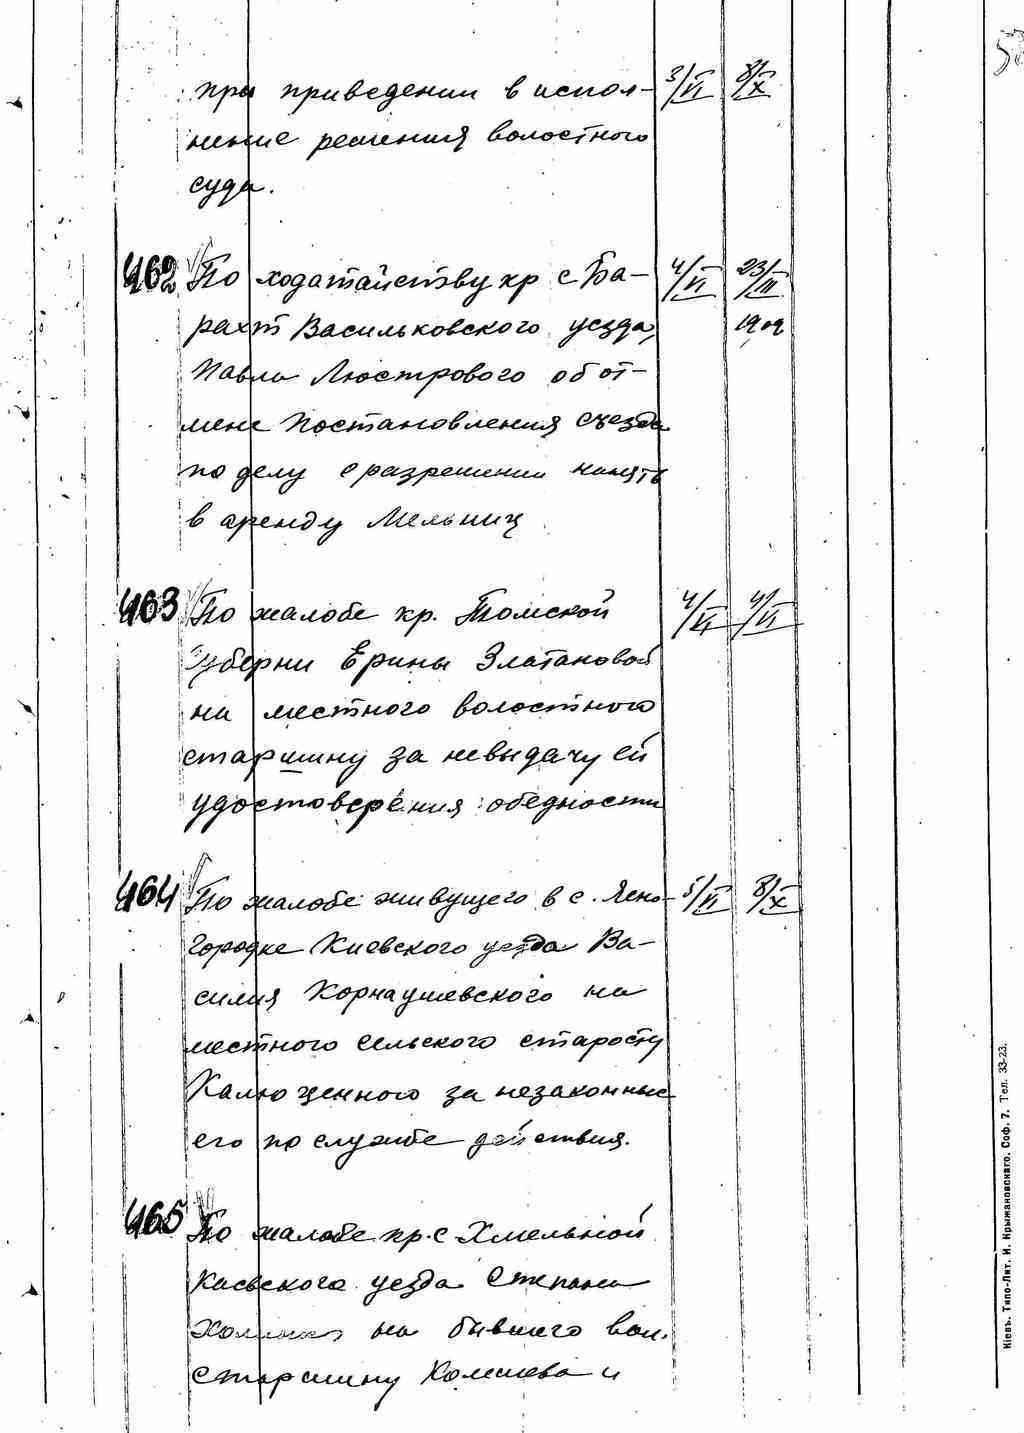 при приведении в испол- 3/VI 8/X
нение решения волостного
суда.
462 По ходатайству кр с Ба- 4/VI 23/III
рахт Васильковского уезда, 1909
Павла Люстрового об от-
мене постановления съезда
по делу о разрешении нанять
в аренду Мельниц
463 По жалобе кр. Томской 4/VI 4/VI
Губерни Ерины Златановой
на местного волостного
старшину за невыдачу ей
удостоверения о бедности
464 По жалобе живущего в с. Ясно- 5/VI 8/X
Городке Киевского уезда Ва-
силия Корнаушевского на
местного сельского старосту
Калюженного за незаконные
его по службе действия.
465 По жалобе кр. с Хмельной
Каевского уезда Степана
на бывшего вол.
старшину Комшева и
Кіевъ. Типо-Лит. И. Крыжановскаго. Соф. 7. Тел. 33-23.